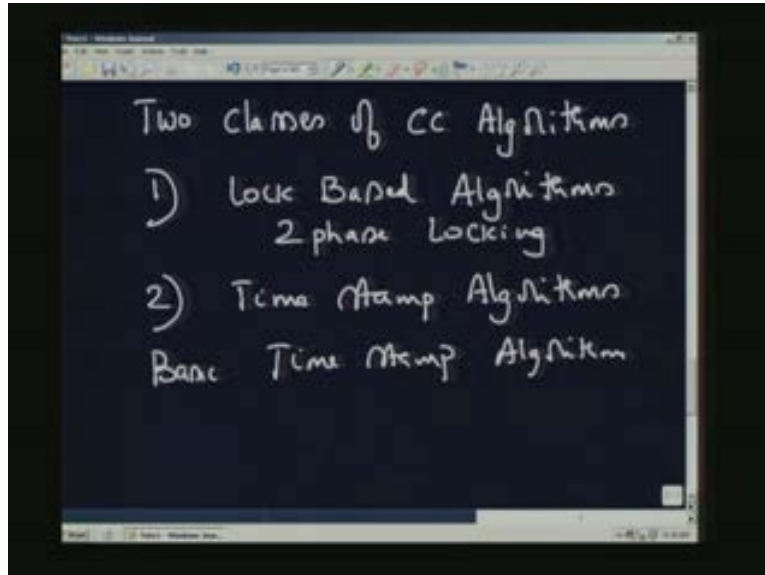 Two classes of CC Algorithms
1) Lock Based Algorithms
2 phase Locking
2) Time stamp Algorithms
Basic Time stamp Algorithm